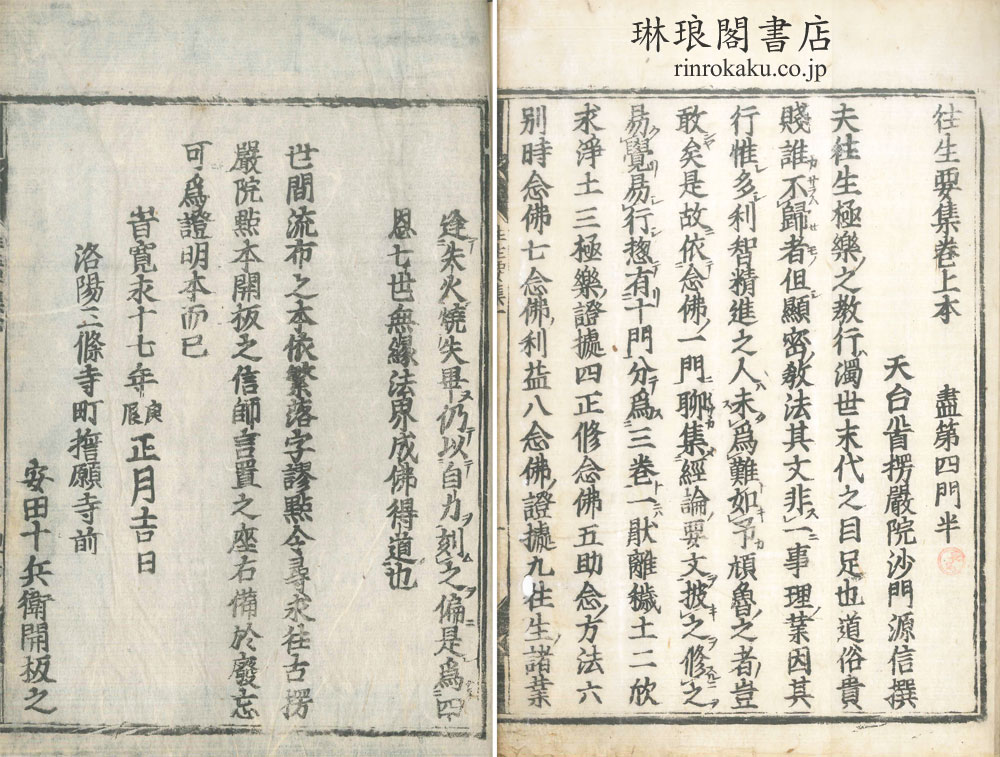 琳琅閣書店
rinrokaku.co.jp
往生要集卷上本　盡第四門半
天台首楞嚴院沙門源信撰
夫往生極樂之教行濁世末代之目足也道俗貴
賤誰不歸者但顯密教法其文非一事理業因其
行惟多利智精進之人未爲難如予頑魯之者豈
敢矣是故依念佛一門聊集經論要文披之修之
易覺易行惣有十門分爲三卷一猒離穢土二欣
求淨土三極樂證據四正修念佛五助念方法六
別時念佛七念佛利益八念佛證據九往生諸業
逢朱火燒失畢仍以自力刻之偏是爲四
恩七世無緣法界成佛得道也
世間流布之本依繁落字謬點今尋求往古楞
嚴院點本開板之信師言置之座右備於廢忘
可爲證明本而已
旹寬永十七年庚辰正月吉日
洛陽三條寺町擔願寺前
安田十兵衛開板之